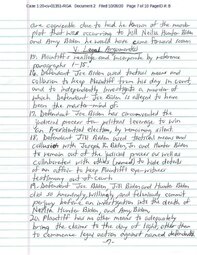 Case 1:20-cv-01352-RGA Document 2 Filed 10/06/20 Page 7 of 10 PageID #: 8
are cognizable due to had he known of the murder
plot that was occurring to kill Neilia Hunter Biden
and Amy Biden he would have came forward sooner.
V. Legal Arguments
15. Plaintiff re-allege and incorporate by reference
paragraphs 1-15.
16. Defendant Joe Biden used tactical means and
collusion to keep Plaintiff from his day in court,
and to independently investigate a murder of
which Defendant Joe Biden is alleged to have
been the master-mind of.
17. Defendant Joe Biden has circumvented the
judicial process for political leverage to win
the Presidential election, by remaining silent.
18. Defendant Joe Biden used tactical means and
collusion with Joseph R. Biden, Jr. and Hunter Biden
to remain out of the judicial process as well as
collaborated with others (named) to hide details
of an effort to keep Plaintiff's eye-witness
testimony out-of-courts.
19. Defendant Joe Biden, Jill Biden, and Hunter Biden
did so knowingly, willingly, and feloniously commit
perjury before an investigation into the deaths of
Neilia Hunter Biden, and Amy Biden.
20. Plaintiff has no other means to adequately
bring the claims to the day of light, other than
to commence legal action against named defendants.
-7-